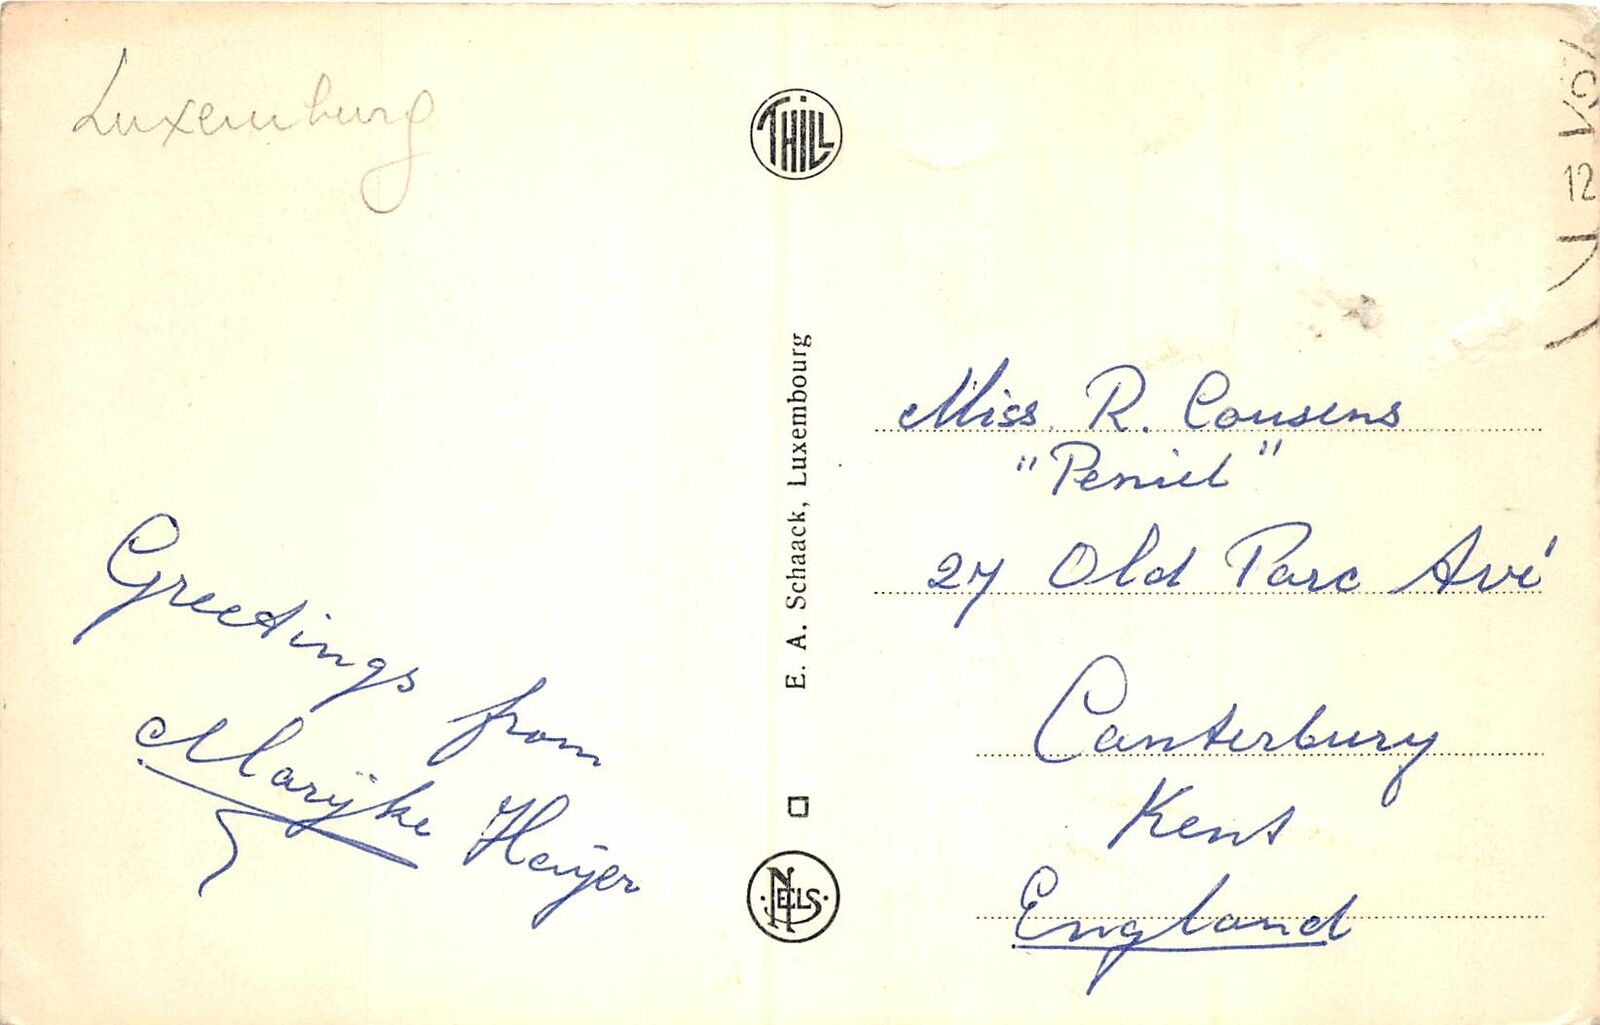 Luxemburg
THILL
12
E. A. Schaack, Luxembourg
Miss. R. Cousens
"Peniel"
27 Old Parc Avé
Canterbury
Kent
England
Greetings from
Marijke Heijer
NELS